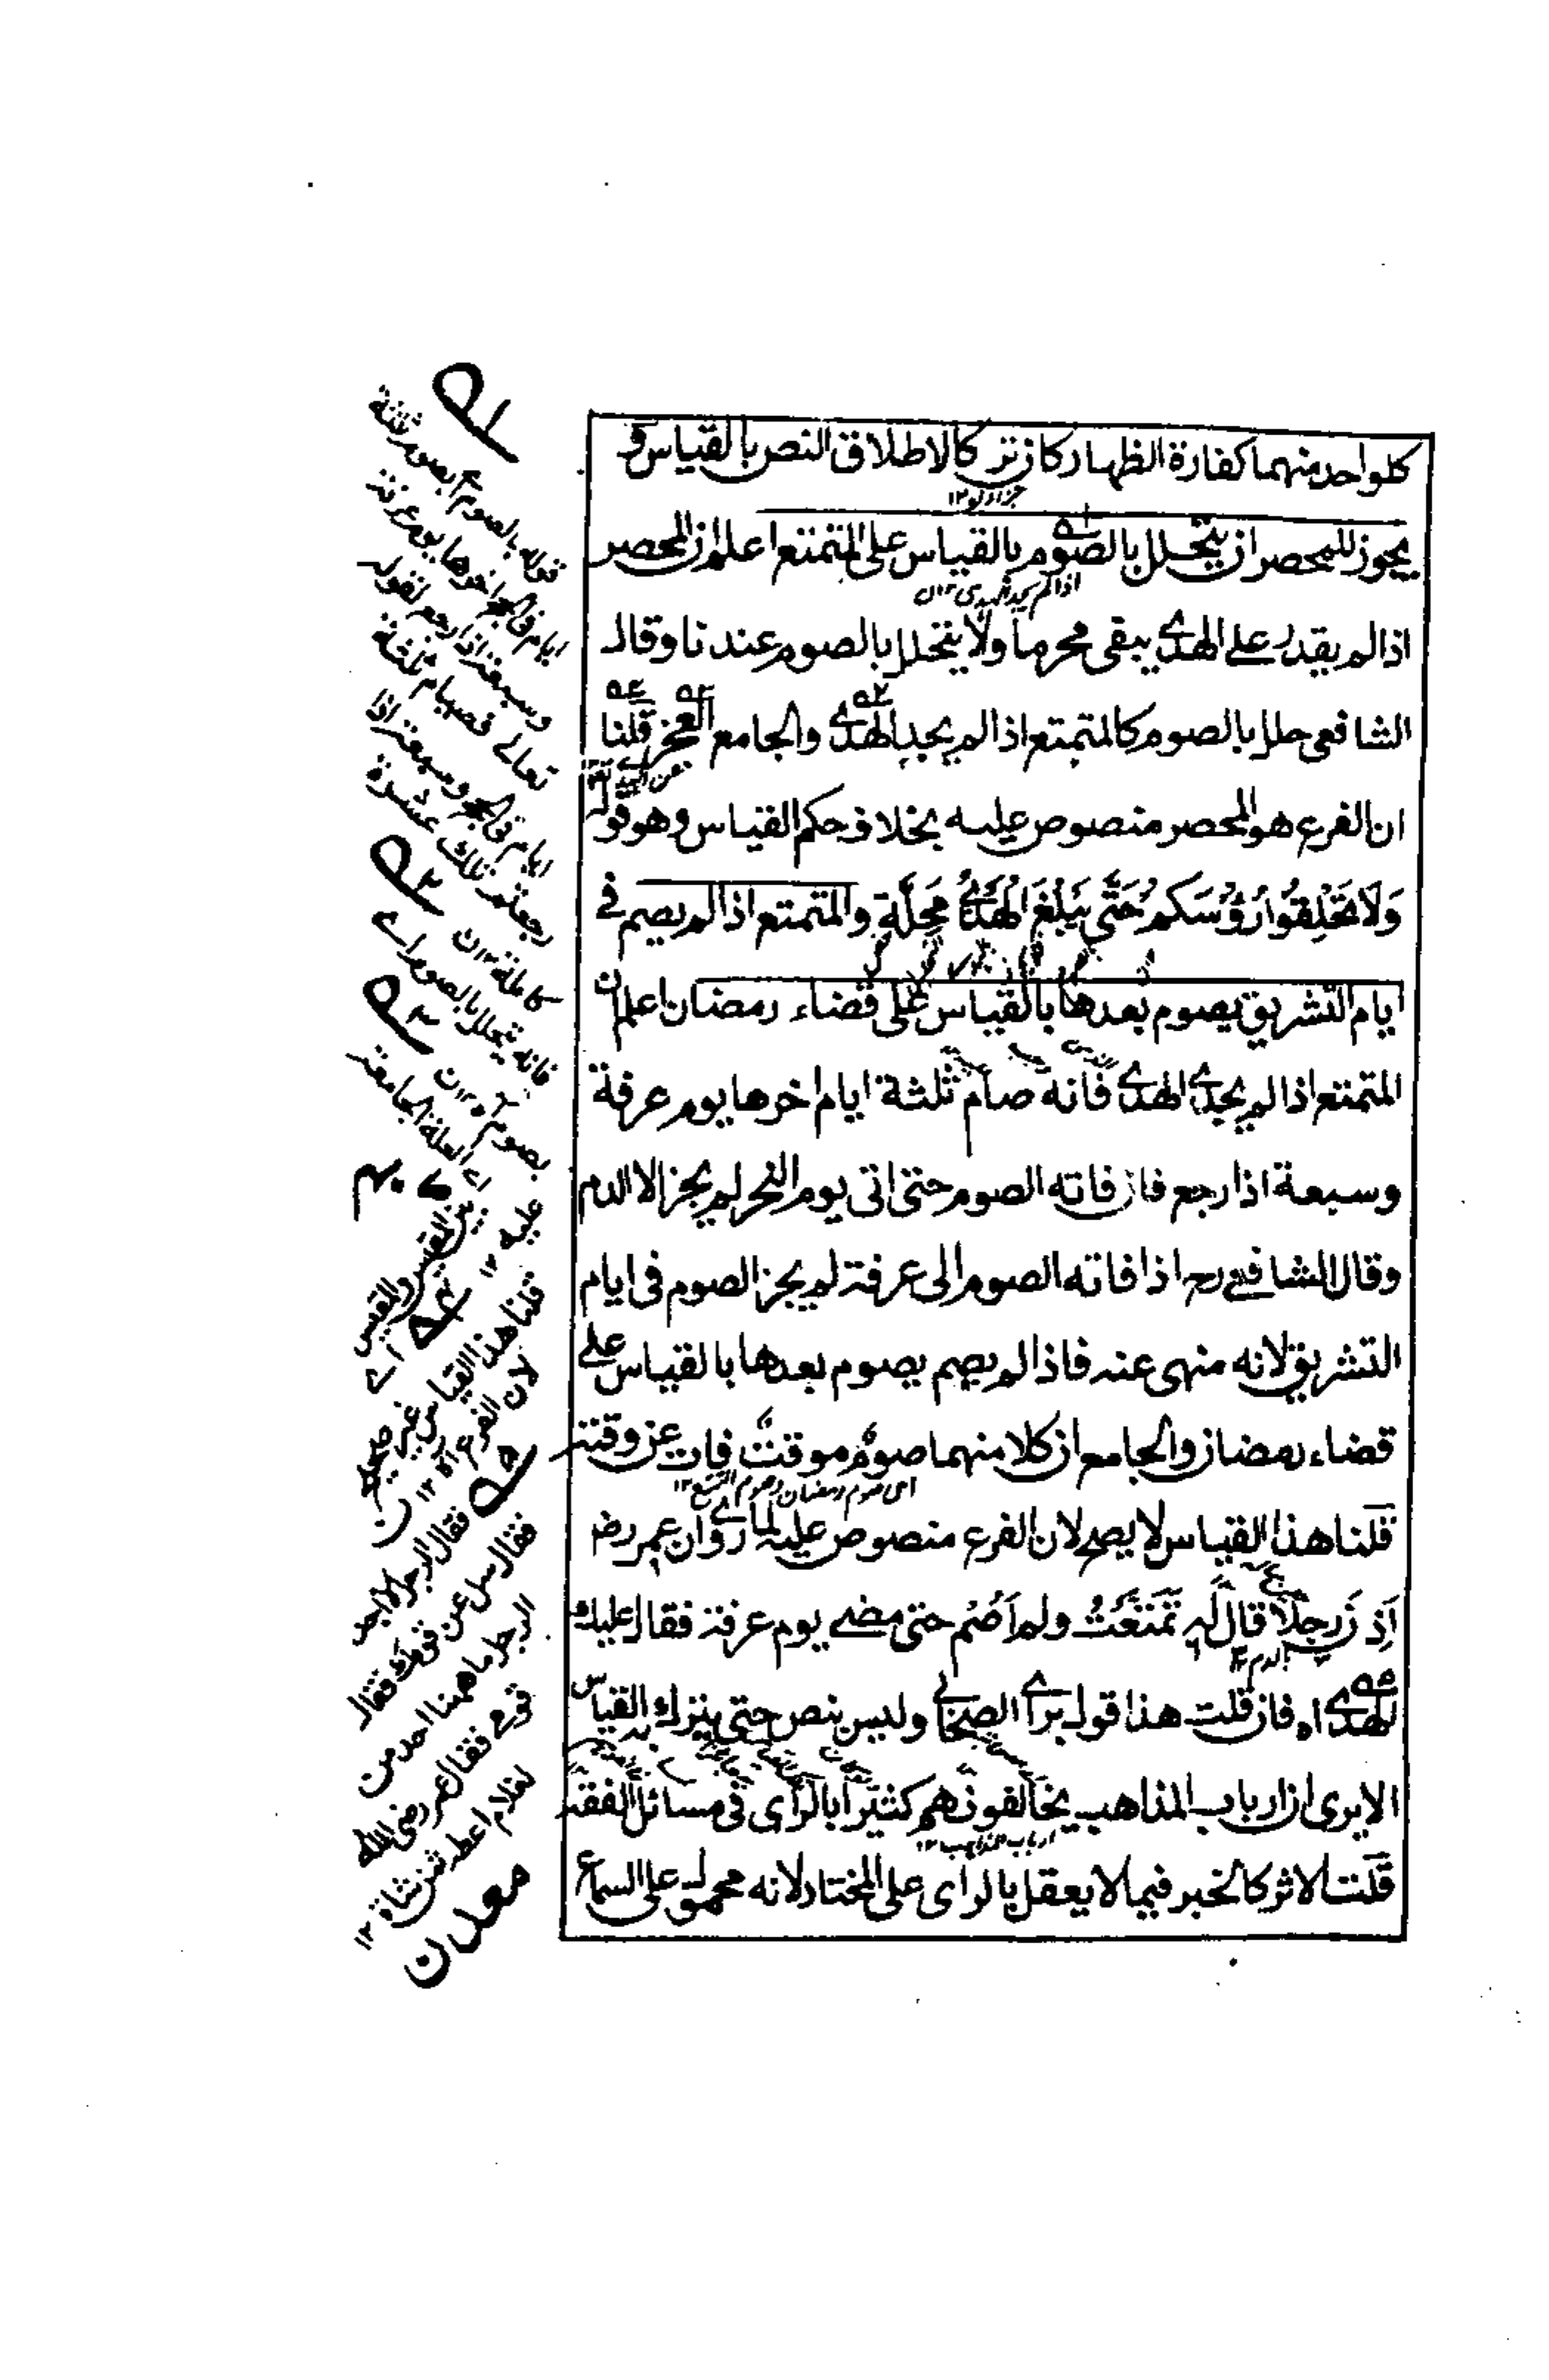 كلواحد منهما كفارة الظهار كان تركا لاطلاق النص بالقياس و
يجوز للمحصر ان يتحلل بالصوم بالقياس على المتمتع اعلم ان المحصر
اذا لم يقدر على الهدى يبقى محرما ولا يتحلل بالصوم عندنا وقال
الشافعى حلل بالصوم كالمتمتع اذا لم يجد الهدى والجامع العجز قلنا
ان الفرع هو المحصر منصوص عليه بخلاف حكم القياس وهو قوله
وَلَا تَحْلِقُوا رُؤُسَكُمْ حَتَّى يَبْلُغَ الْهَدْىُ مَحِلَّهُ والمتمتع اذا لم يصم فى
ايام التشريق يصوم بعدها بالقياس على قضاء رمضان اعلم ان
المتمتع اذا لم يجد الهدى فانه صام ثلثة ايام اخرها يوم عرفة
وسبعة اذا رجع فان فاته الصوم حتى اتى يوم النحر لم يجز الا الدم
وقال الشافعى رح اذا فاته الصوم الى عرفة لم يجز الصوم فى ايام
التشريق لانه منهى عنه فاذا لم يصم يصوم بعدها بالقياس على
قضاء رمضان والجامع ان كلا منهما صوم موقت فات عن وقته
اى صوم رمضان وصوم التمتع ١٢
قلنا هذا القياس لا يصح لان الفرع منصوص عليه لما روى ان عمر رض
اذ رجلا قال له تمتعت ولم اصم حتى مضى يوم عرفة فقال عليك
الهدى اه فان قلت هذا قول براى الصحابى وليس بنص حتى يترك به القياس
الا يرى ان ارباب المذاهب يخالفونهم كثيرا بالراى فى مسائل الفقه
ارباب المذاهب ١٢
قلت الاثر كالخبر فيما لا يعقل بالراى على المختار لانه محمول على السماع
قوله بالصوم اى بصوم ثلثة
ايام فى الحج اخرها يوم عرفة
وسبعة اذا رجع لقوله
تعالى فصيام ثلثة
ايام فى الحج وسبعة اذا
رجعتم تلك عشرة
كاملة ١٢ ن
فانه يتحلل بالصوم اى
اى العلة الجامعة
بين المقيس والمقيس
عليه ١٢
قلنا هذا القياس غير صحيح
لان الفرع اه ١٢ ن
فقال الرجل لا اجد
فقال سل عن قومك فقال
الرجل ما ههنا احد من
قومى فقال عمر رضى الله
لغلام اعط ثمن شاة ١٢
معدن